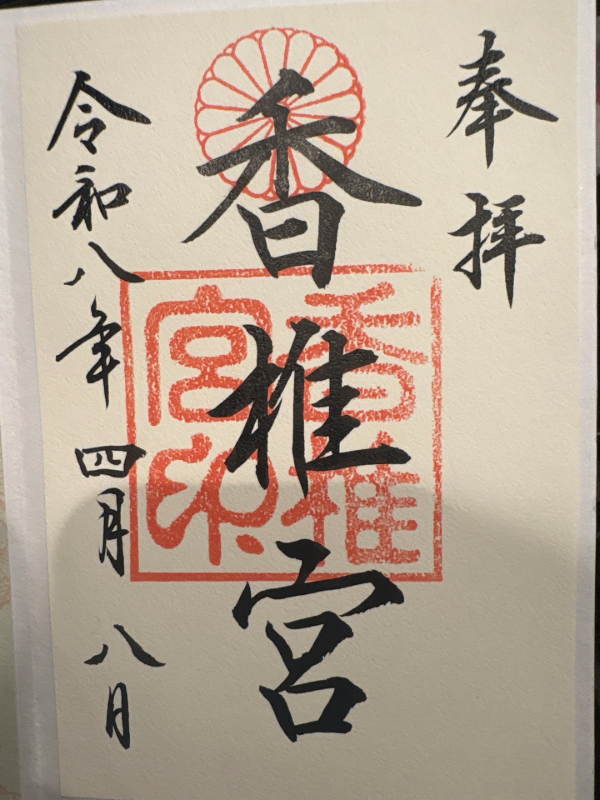 奉拝
香椎宮
香椎
宮印
令和八年四月八日